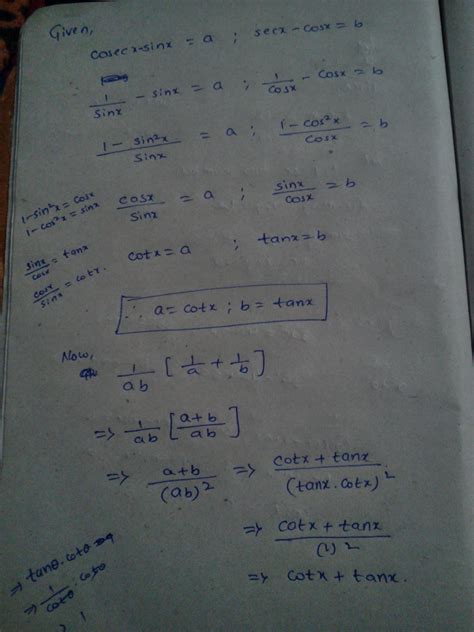 Given,
cosecx-sinx = a ; secx-cosx = b
1/sinx - sinx = a ; 1/cosx - cosx = b
1-sin²x/sinx = a ; 1-cos²x/cosx = b
1-sin²x = cosx
1-cos²x = sinx
cosx/sinx = a ; sinx/cosx = b
sinx/cosx = tanx
cosx/sinx = cotx.
cotx = a ; tanx = b
∴ a = cotx ; b = tanx
Now,
1/ab [1/a + 1/b]
=> 1/ab [a+b/ab]
=> a+b/(ab)² => cotx + tanx/(tanx.cotx)²
=> cotx + tanx/(1)²
=> cotx + tanx.
=> tanθ.cotθ
=> 1/cotθ.cotθ
1